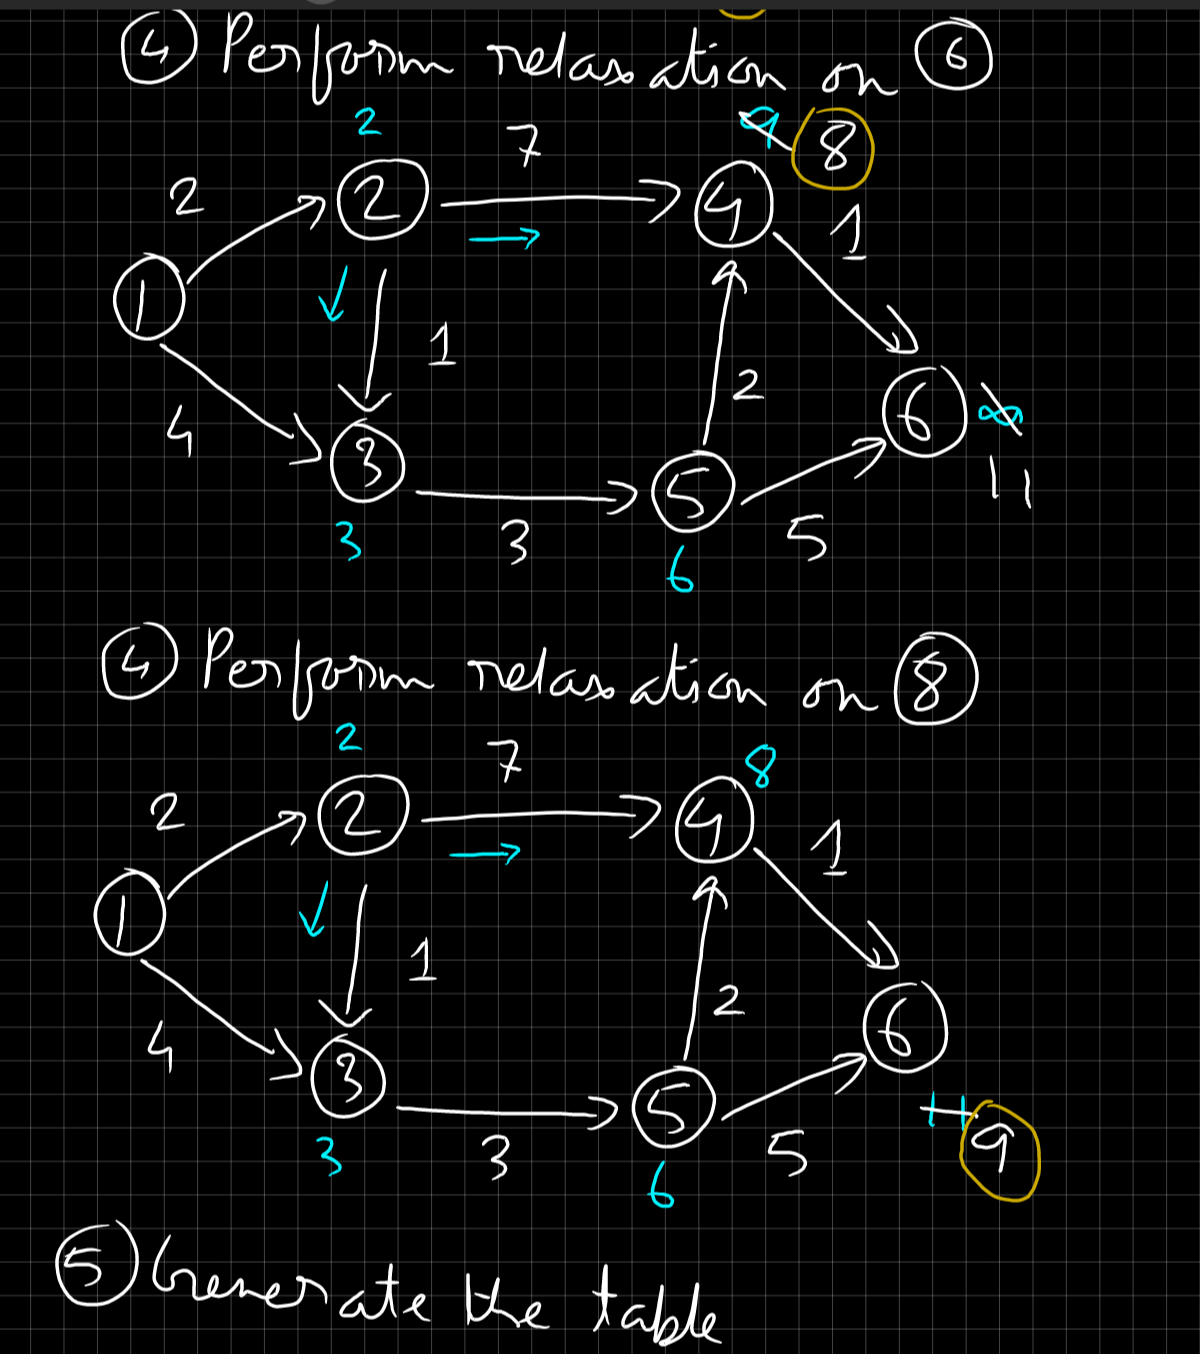 ④ Perform relaxation on ⑥
2 7 9 8
2 ② ④ 1
① 1
4 ③ 2 ⑥ ∞
3 3 ⑤ 5 11
6
④ Perform relaxation on ⑧
2 7 8
2 ② ④ 1
① 1
4 ③ 2 ⑥
3 3 ⑤ 5 11 9
6
⑤ Generate the table